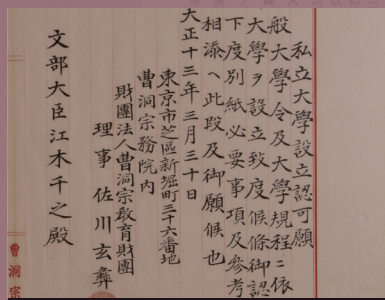 私立大學設立認可願
般大學令及大學規程ニ依
大學ヲ設立致度候條御認
下度別紙必要事項及參考
相添ヘ此段及御願候也
大正十三年三月三十日
東京市芝區新堀町三十六番地
曹洞宗務院内
財團法人曹洞宗教育財團
理事佐川玄彝
文部大臣江木千之殿
曹洞宗